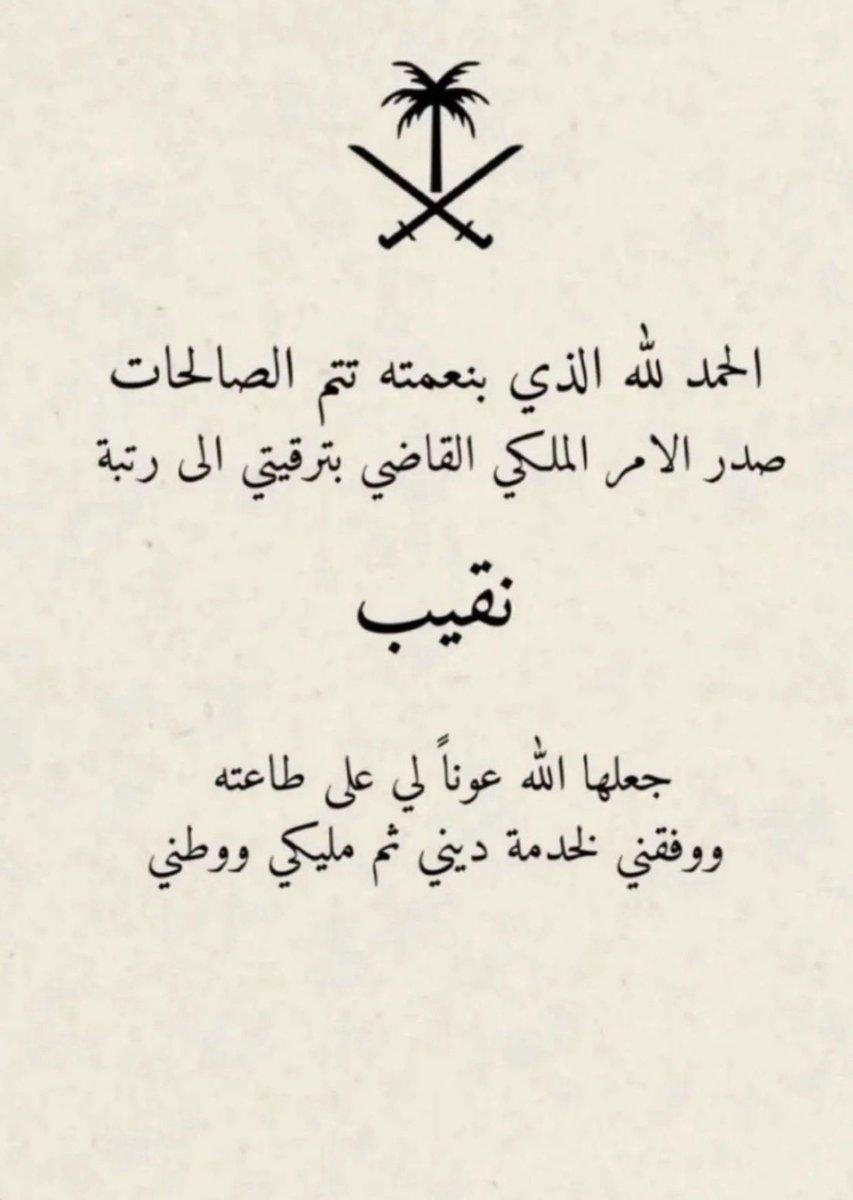 الحمد لله الذي بنعمته تتم الصالحات
صدر الامر الملكي القاضي بترقيتي الى رتبة
نقيب
جعلها الله عوناً لي على طاعته
ووفقني لخدمة ديني ثم مليكي ووطني